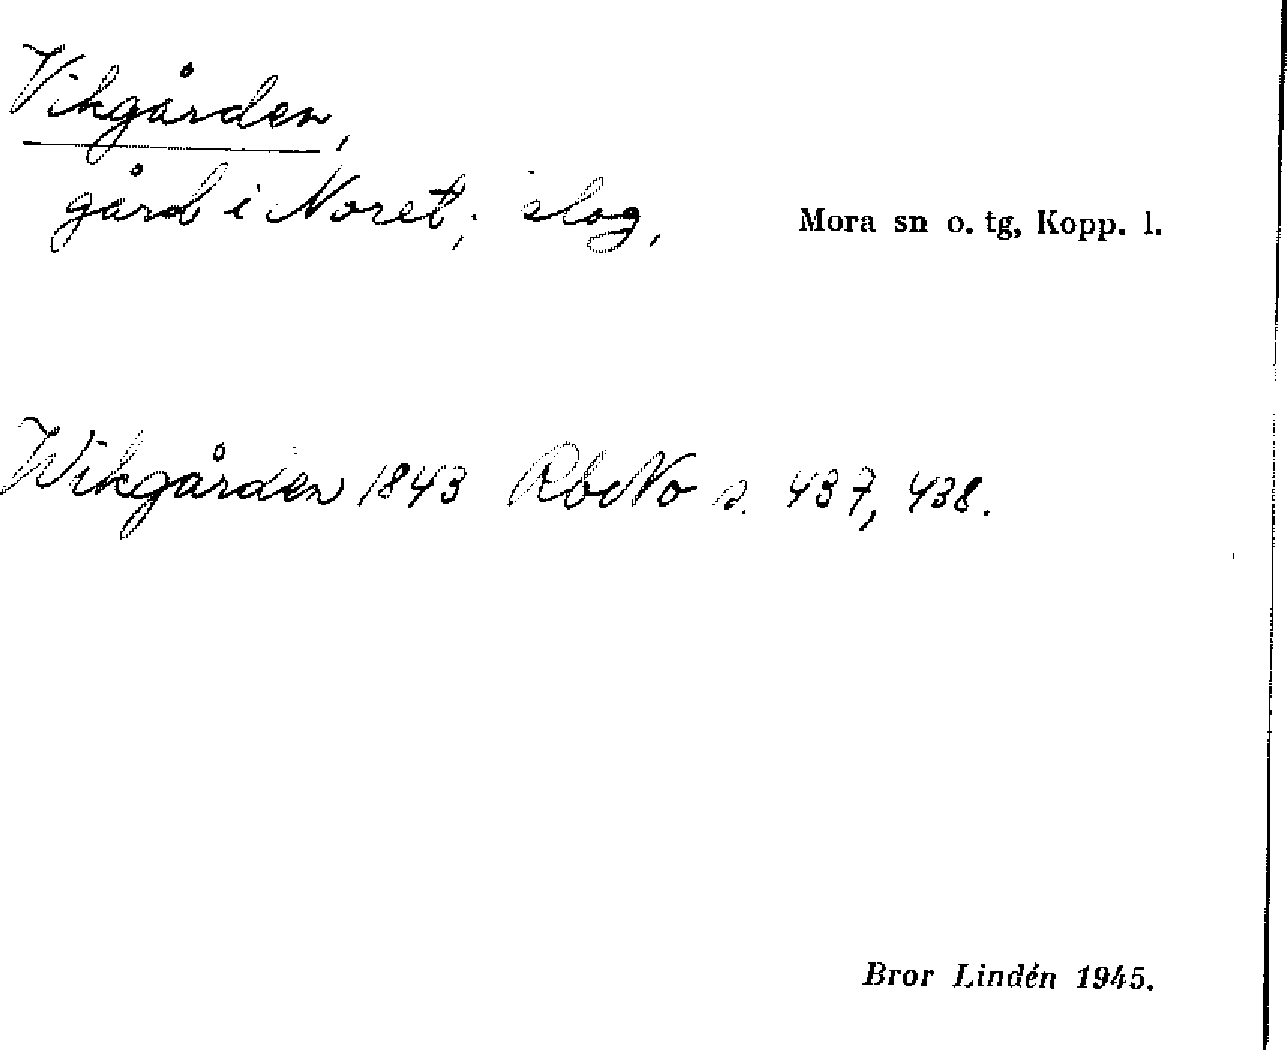 Vikgården,
gård i Noret; slog, Mora sn o. tg, Kopp. l.
Wikgården 1843 RboNo s. 437, 438.
Bror Lindén 1945.